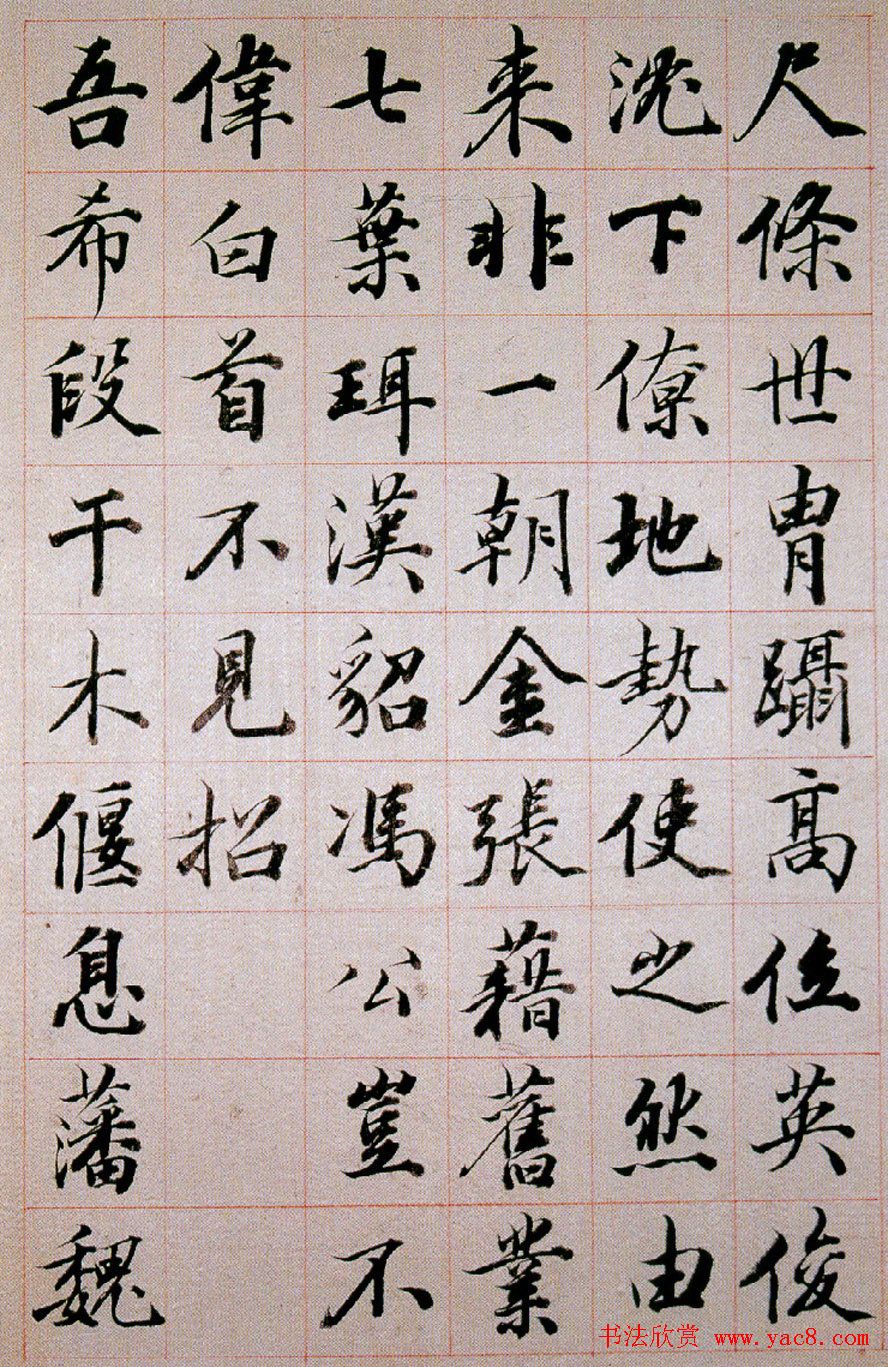 尺條世胄躡髙位英俊
沈下僚地勢使之然由
来非一朝金張藉舊業
七葉珥漢貂馮公豈不
偉白首不見招
吾希段干木偃息藩魏
书法欣赏 www.yac8.com